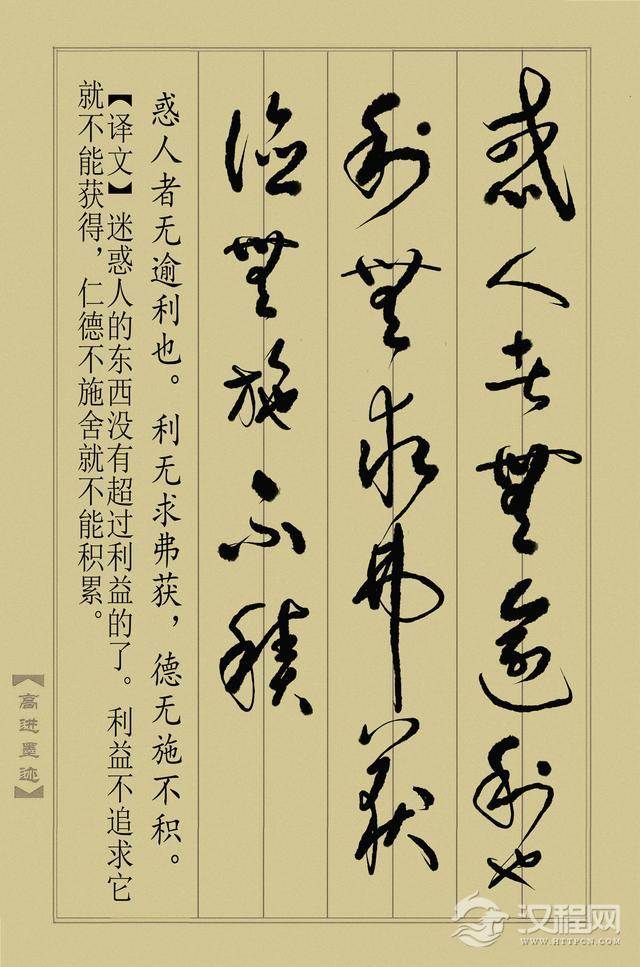 惑人者無逾利也
利無求弗获
德無施不積
惑人者无逾利也。利无求弗获，德无施不积。
【译文】迷惑人的东西没有超过利益的了。利益不追求它
就不能获得，仁德不施舍就不能积累。
【高进墨迹】
汉程网
WWW.HTTPCN.COM